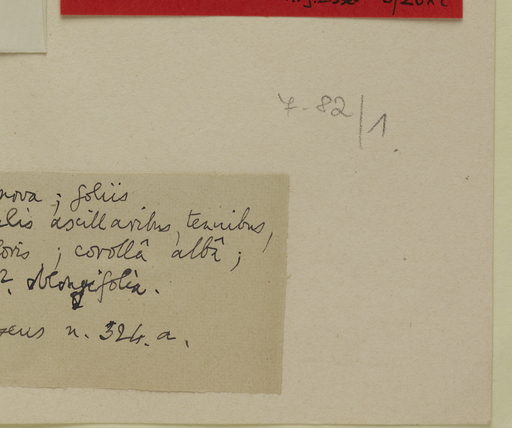 7-82/1
nova ; foliis
axillaribus, tenuibus,
; corollâ albâ ;
oblongifolia.
n. 324. a.